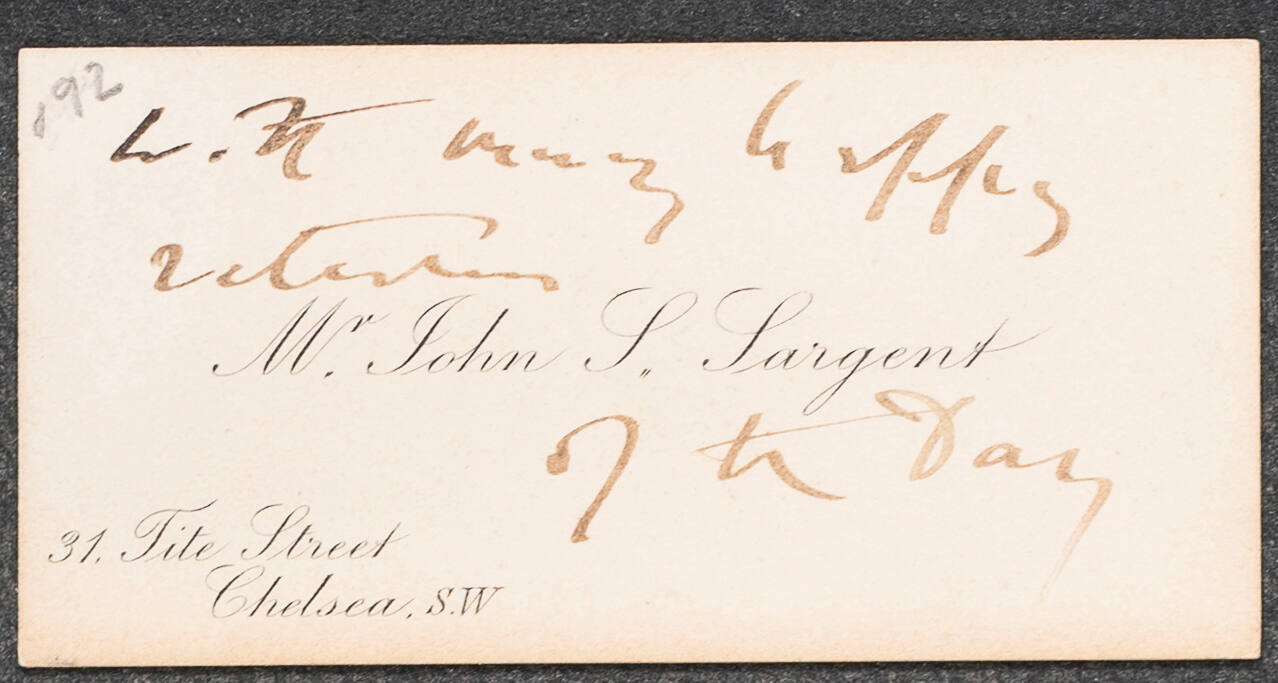 '92
with many happy
returns
Mr. John S. Sargent
of the Day
31, Tite Street
Chelsea, S.W